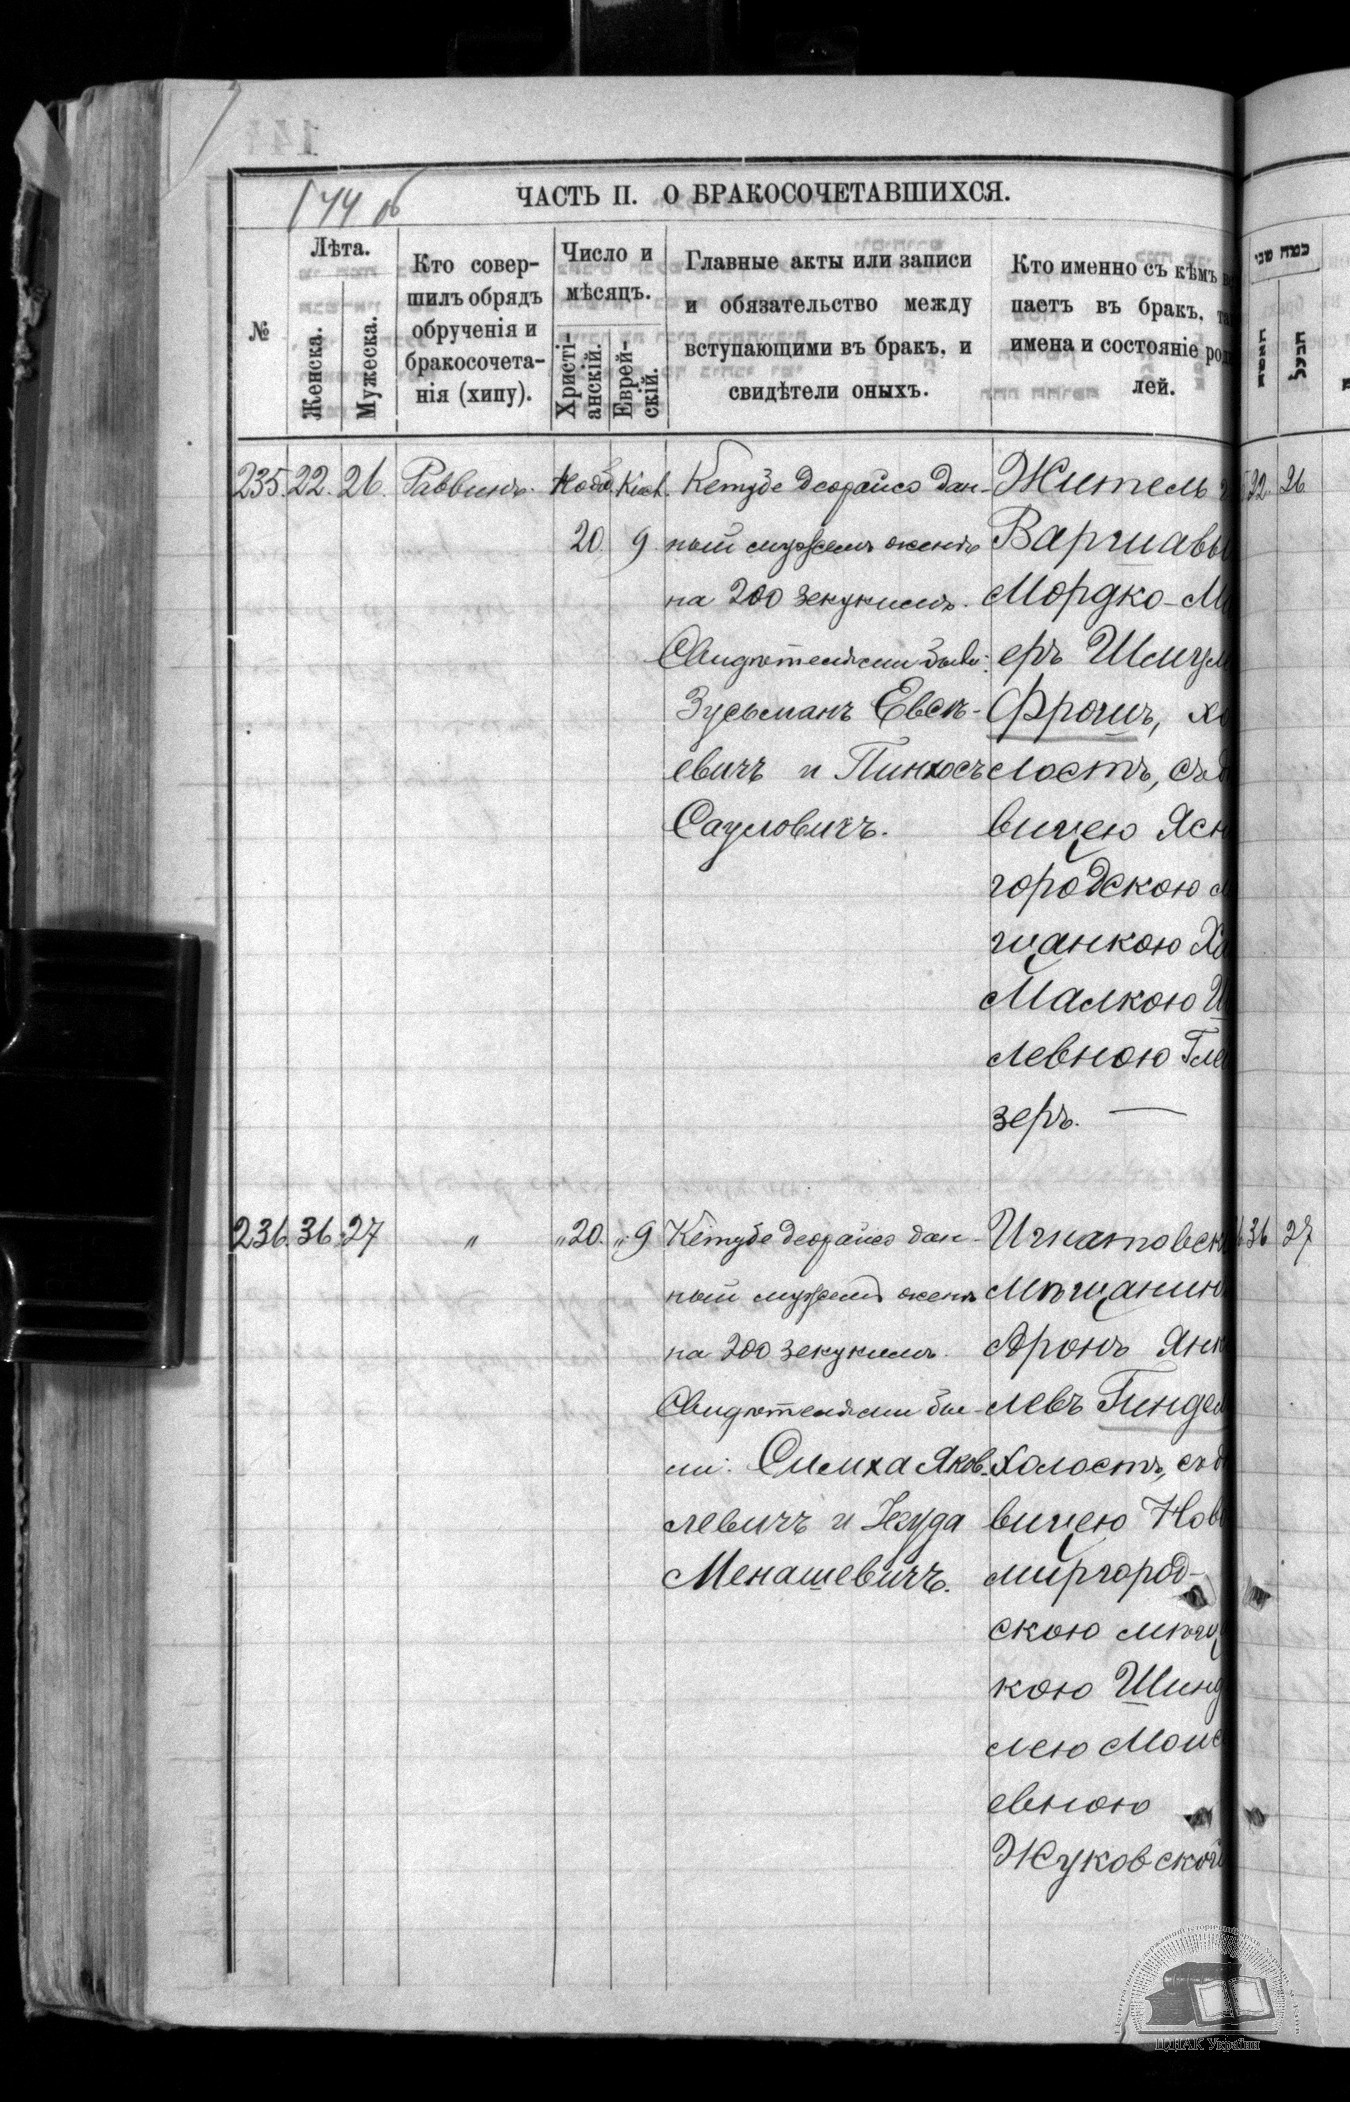 144 об
ЧАСТЬ II. О БРАКОСОЧЕТАВШИХСЯ.
№
Лѣта.
Женска.
Мужеска.
Кто совер-
шилъ обрядъ
обрученія и
бракосочета-
нія (хипу).
Число и
мѣсяцъ.
Христі-
анскій.
Еврей-
скій.
Главные акты или записи
и обязательство между
вступающими въ бракъ, и
свидѣтели оныхъ.
Кто именно съ кѣмъ
паетъ въ бракъ,
имена и состояніе
лей.
כמה שני
האשה
הבעל
235. 22. 26. Раввинъ. Нояб. Кисл.
20. 9.
Кетубе деорайсо дан-
ный мужемъ женѣ
на 200 зекукимъ.
Свидѣтелями были:
Зусьманъ Евсѣ-
евичъ и Пинхосъ
Сауловичъ.
Житель г
Варшавы
Мордко-М
еръ Шмул
Фрошъ, хо
лостъ, съ д
вицею Ясн
городскою м
щанкою Ха
Малкою И
левною Гле
зеръ. —
22. 26
236. 36. 27 " " 20. " 9
Кетубе деорайсо дан-
ный мужемъ женѣ
на 200 зекукимъ.
Свидѣтелями бы-
ли: Симха Яков-
левичъ и Іегуда
Менашевичъ.
Игнатовск
мѣщанинъ
Аронъ Янк
левъ Гиндел
холостъ, съ д
вицею Ново
миргород-
скою мѣщ
кою Шинд
лею Моис
евною
Жуковской
36 27
ЦДІАК України